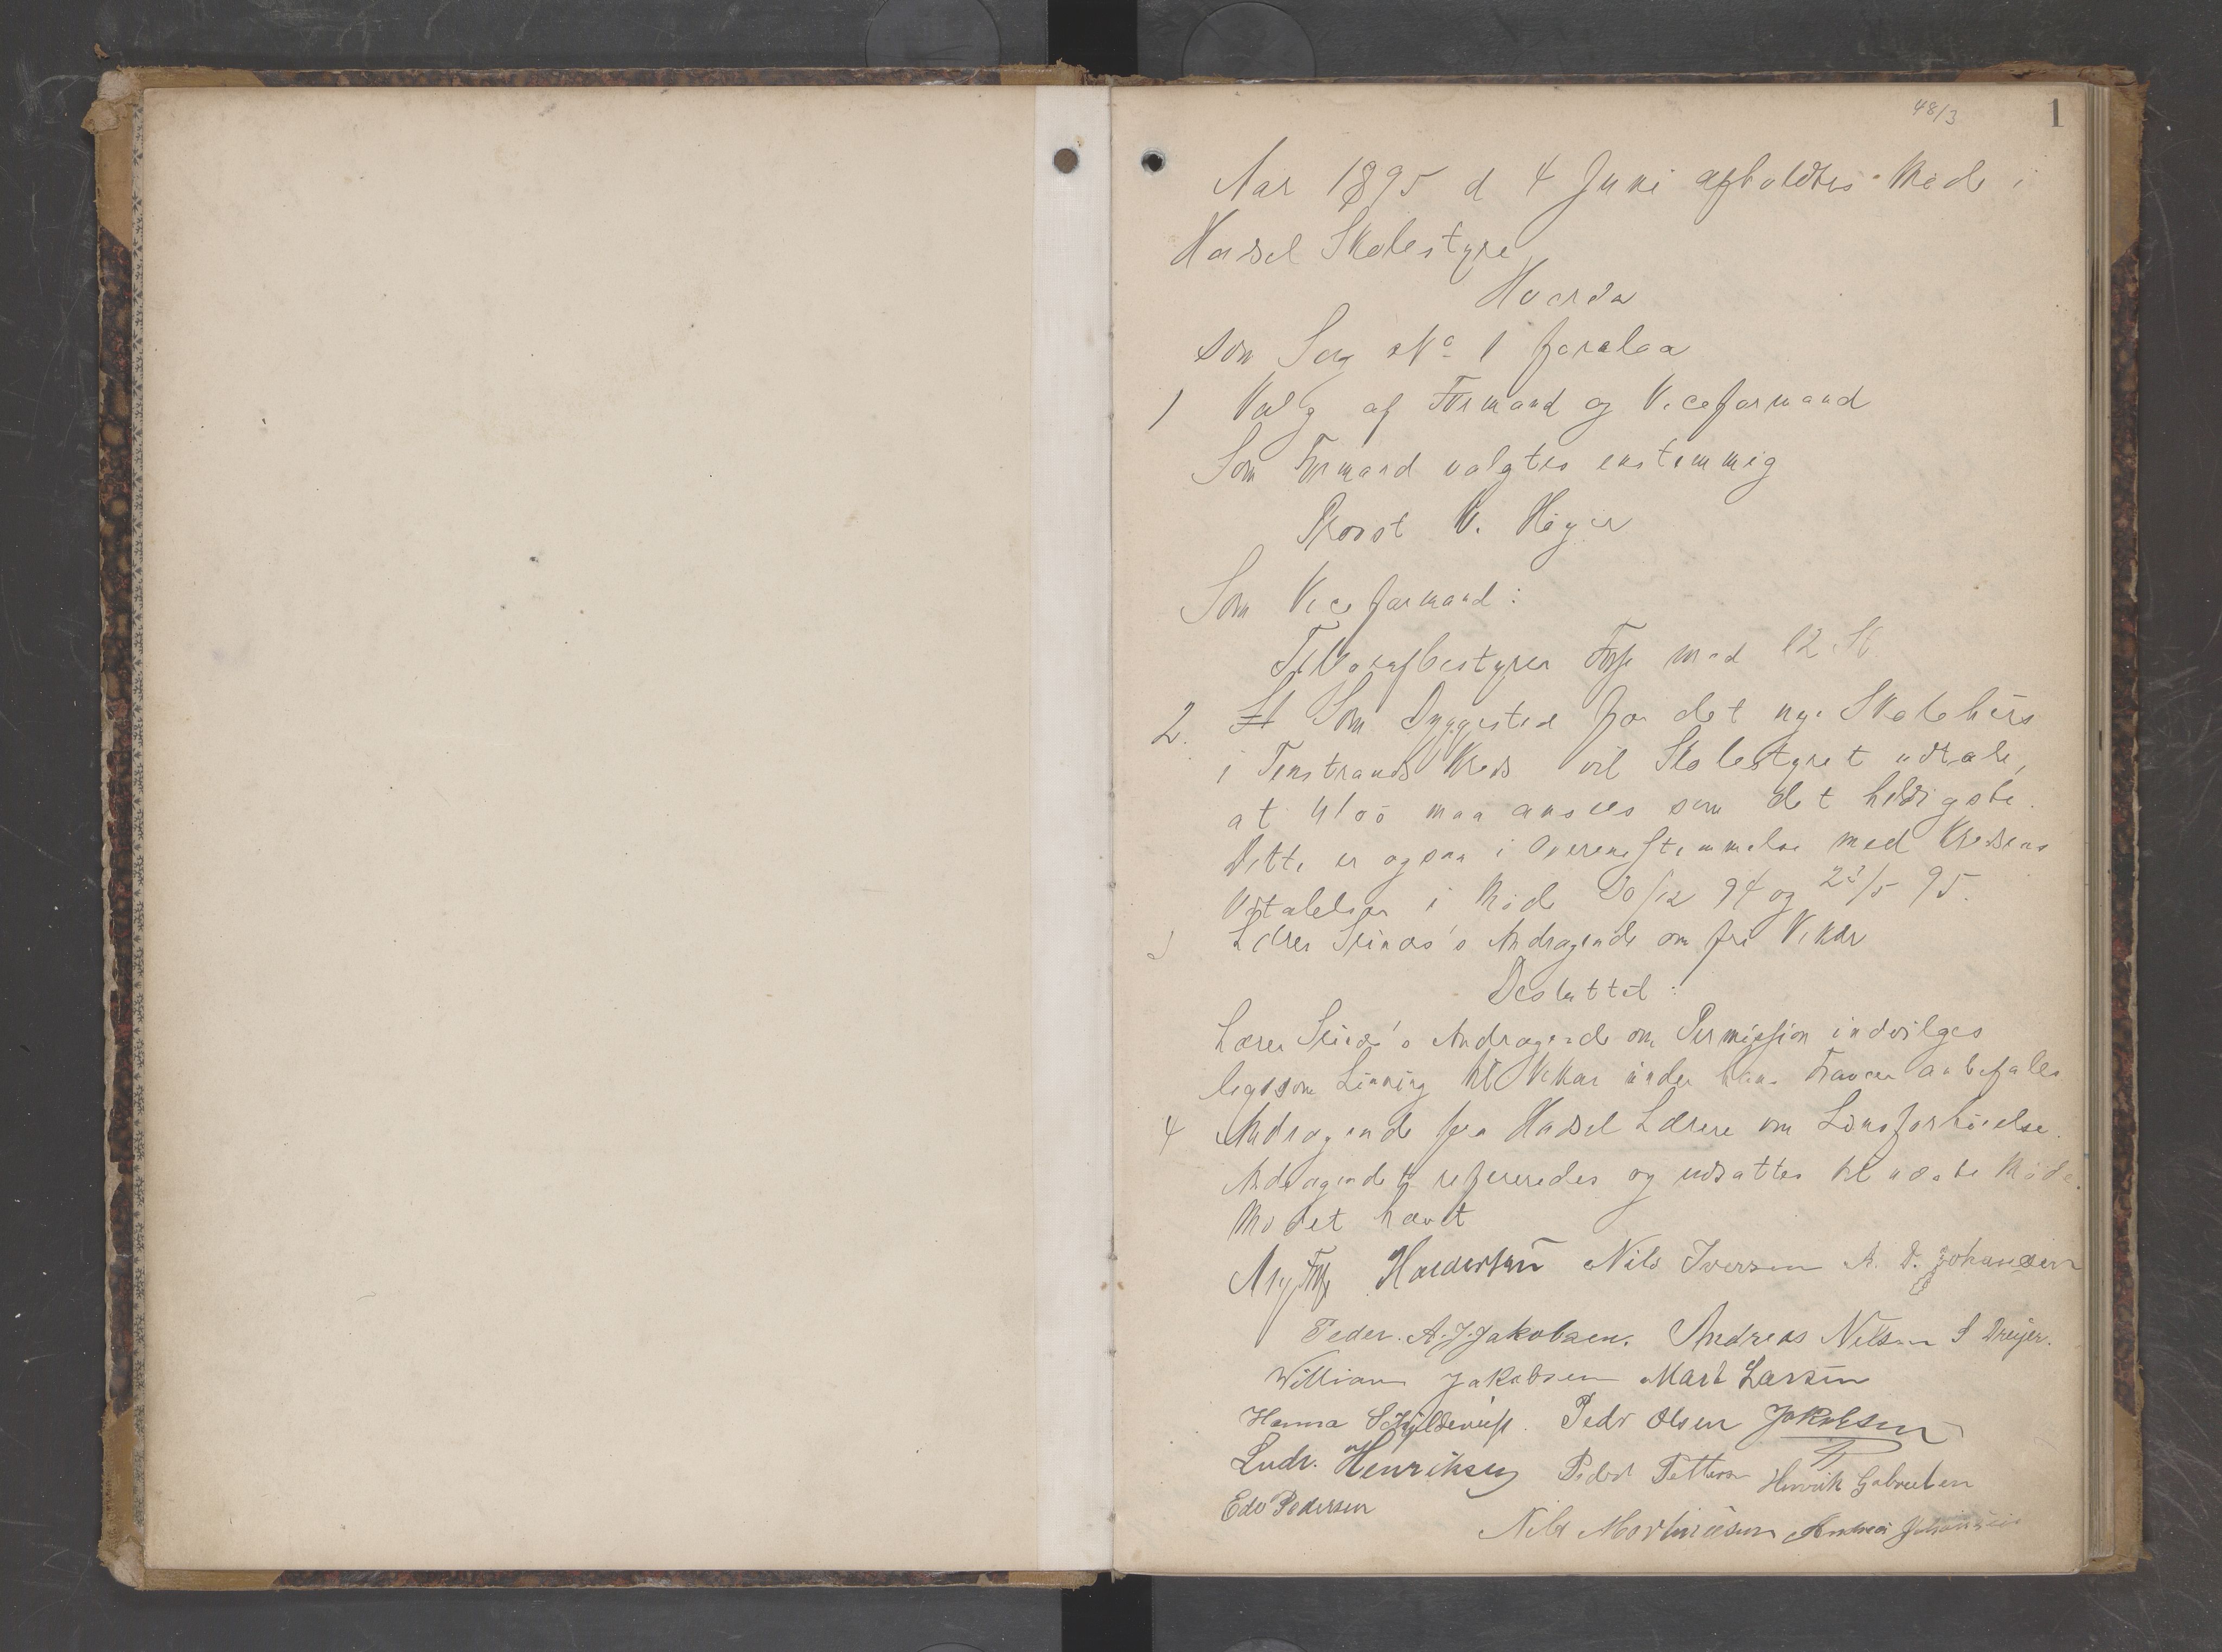 48/3
1
Aar 1895 d 4 Juni afholdtes Møde i
Hadsel Skolestyre
Hvorda
som Sag No 1 forelaa
1 Valg af Formand og Viceformand
Som Formand valgtes enstemmig
Provst K. Høyer
Som Viceformand:
Telegrafbestyrer Friis med 12 St.
2. Som Byggested for det nye Skolehus
i Kreds vil Skolestyret udtale,
at maa ansees som det heldigste.
Dette er ogsaa i Overensstemmelse med Kredsens
Udtalelser i Møde 30/12 94 og 23/5 95.
3 Lærer Andragende om fri Vikar
Besluttet:
Lærer Andragende om Permission indvilges
ligesom til Vikar under hans Fravær anbefales
4 Andragende fra Hadsel Lærere om Lønsforhøielse.
Andragendet refereredes og udsattes til næste Møde.
Mødet hævet
Nils Iversen A. D. Johansen
Peder. A. J. Jakobsen. Andreas Nilsen S Dreyer.
William Jakobsen Mart Larsen
Hanna Peder Olsen Jakobsen
Ludv. Henriksen Peder Petterson Henrik Gabrielsen
Edv Pedersen
Nils Mortinussen Andreas Johannesen